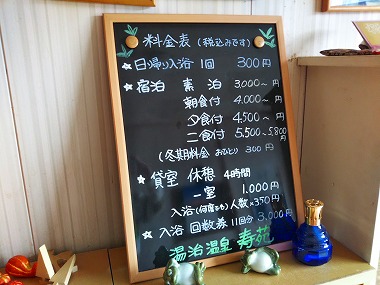 料金表 (税込みです)
☆日帰り入浴 1回 300円
☆宿泊 素泊 3,000～円
朝食付 4,000～円
夕食付 4,500～円
二食付 5,500～5,800円
(冬期料金 おひとり 300円
☆貸室 休憩 4時間
一室 1,000円
入浴(何度でも)人数×350円
☆入浴 回数券 11回分 3,000円
湯治温泉 寿苑